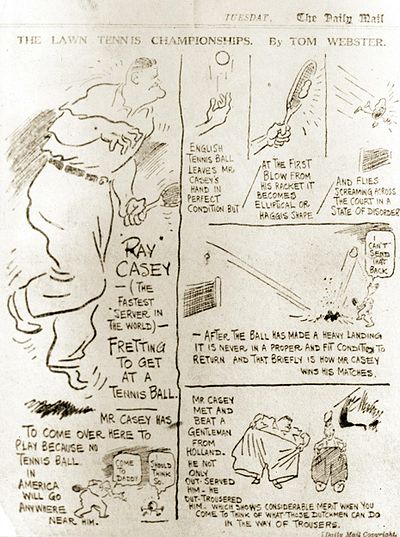 TUESDAY,
The Daily Mail
THE LAWN TENNIS CHAMPIONSHIPS. By TOM WEBSTER.
"RAY"
CASEY
— (THE
FASTEST
SERVER IN
THE WORLD) —
FRETTING
TO GET
AT A
TENNIS BALL.
MR CASEY HAS
TO COME OVER HERE TO
PLAY BECAUSE NO
TENNIS BALL
IN
AMERICA
WILL GO
ANYWHERE
NEAR HIM.
COME
TO DADDY
I SHOULD
THINK
SO.
ENGLISH
TENNIS BALL
LEAVES MR
CASEY'S
HAND IN
PERFECT
CONDITION BUT
AT THE FIRST
BLOW FROM
HIS RACKET IT
BECOMES
ELLIPTICAL OR
HAGGIS SHAPE
AND FLIES
SCREAMING ACROSS
THE COURT IN A
STATE OF DISORDER
CAN'T
SEND
THAT
BACK
— AFTER THE BALL HAS MADE A HEAVY LANDING
IT IS NEVER IN A PROPER AND FIT CONDITION TO
RETURN AND THAT BRIEFLY IS HOW MR CASEY
WINS HIS MATCHES.
MR CASEY
MET AND
BEAT A
GENTLEMAN
FROM
HOLLAND.
HE NOT
ONLY
OUT-SERVED
HIM — HE
OUT-TROUSERED
HIM — WHICH SHOWS CONSIDERABLE MERIT WHEN YOU
COME TO THINK OF WHAT THOSE DUTCHMEN CAN DO
IN THE WAY OF TROUSERS.
Tom Webster
[Daily Mail Copyright.